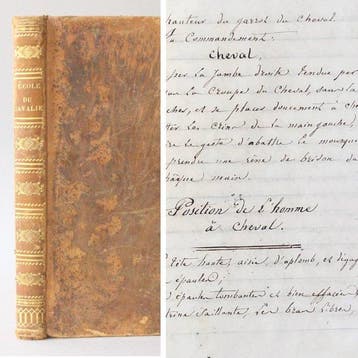 ÉCOLE
DU
CAVALIE
hauteur du garrot du Cheval.
Commandement:
Cheval.
la Jambe droite tendue par
la Croupe du Cheval, sans la
et se placer doucement à
les Crins de la main gauche,
le geste d'abattre le
prendre une rêne de bridon da
chaque main.
Position de l'homme
à Cheval.
Tête haute, aisée, d'aplomb, et dégag
épaules;
épaules tombantes et bien effacées
saillante, les bras libres,